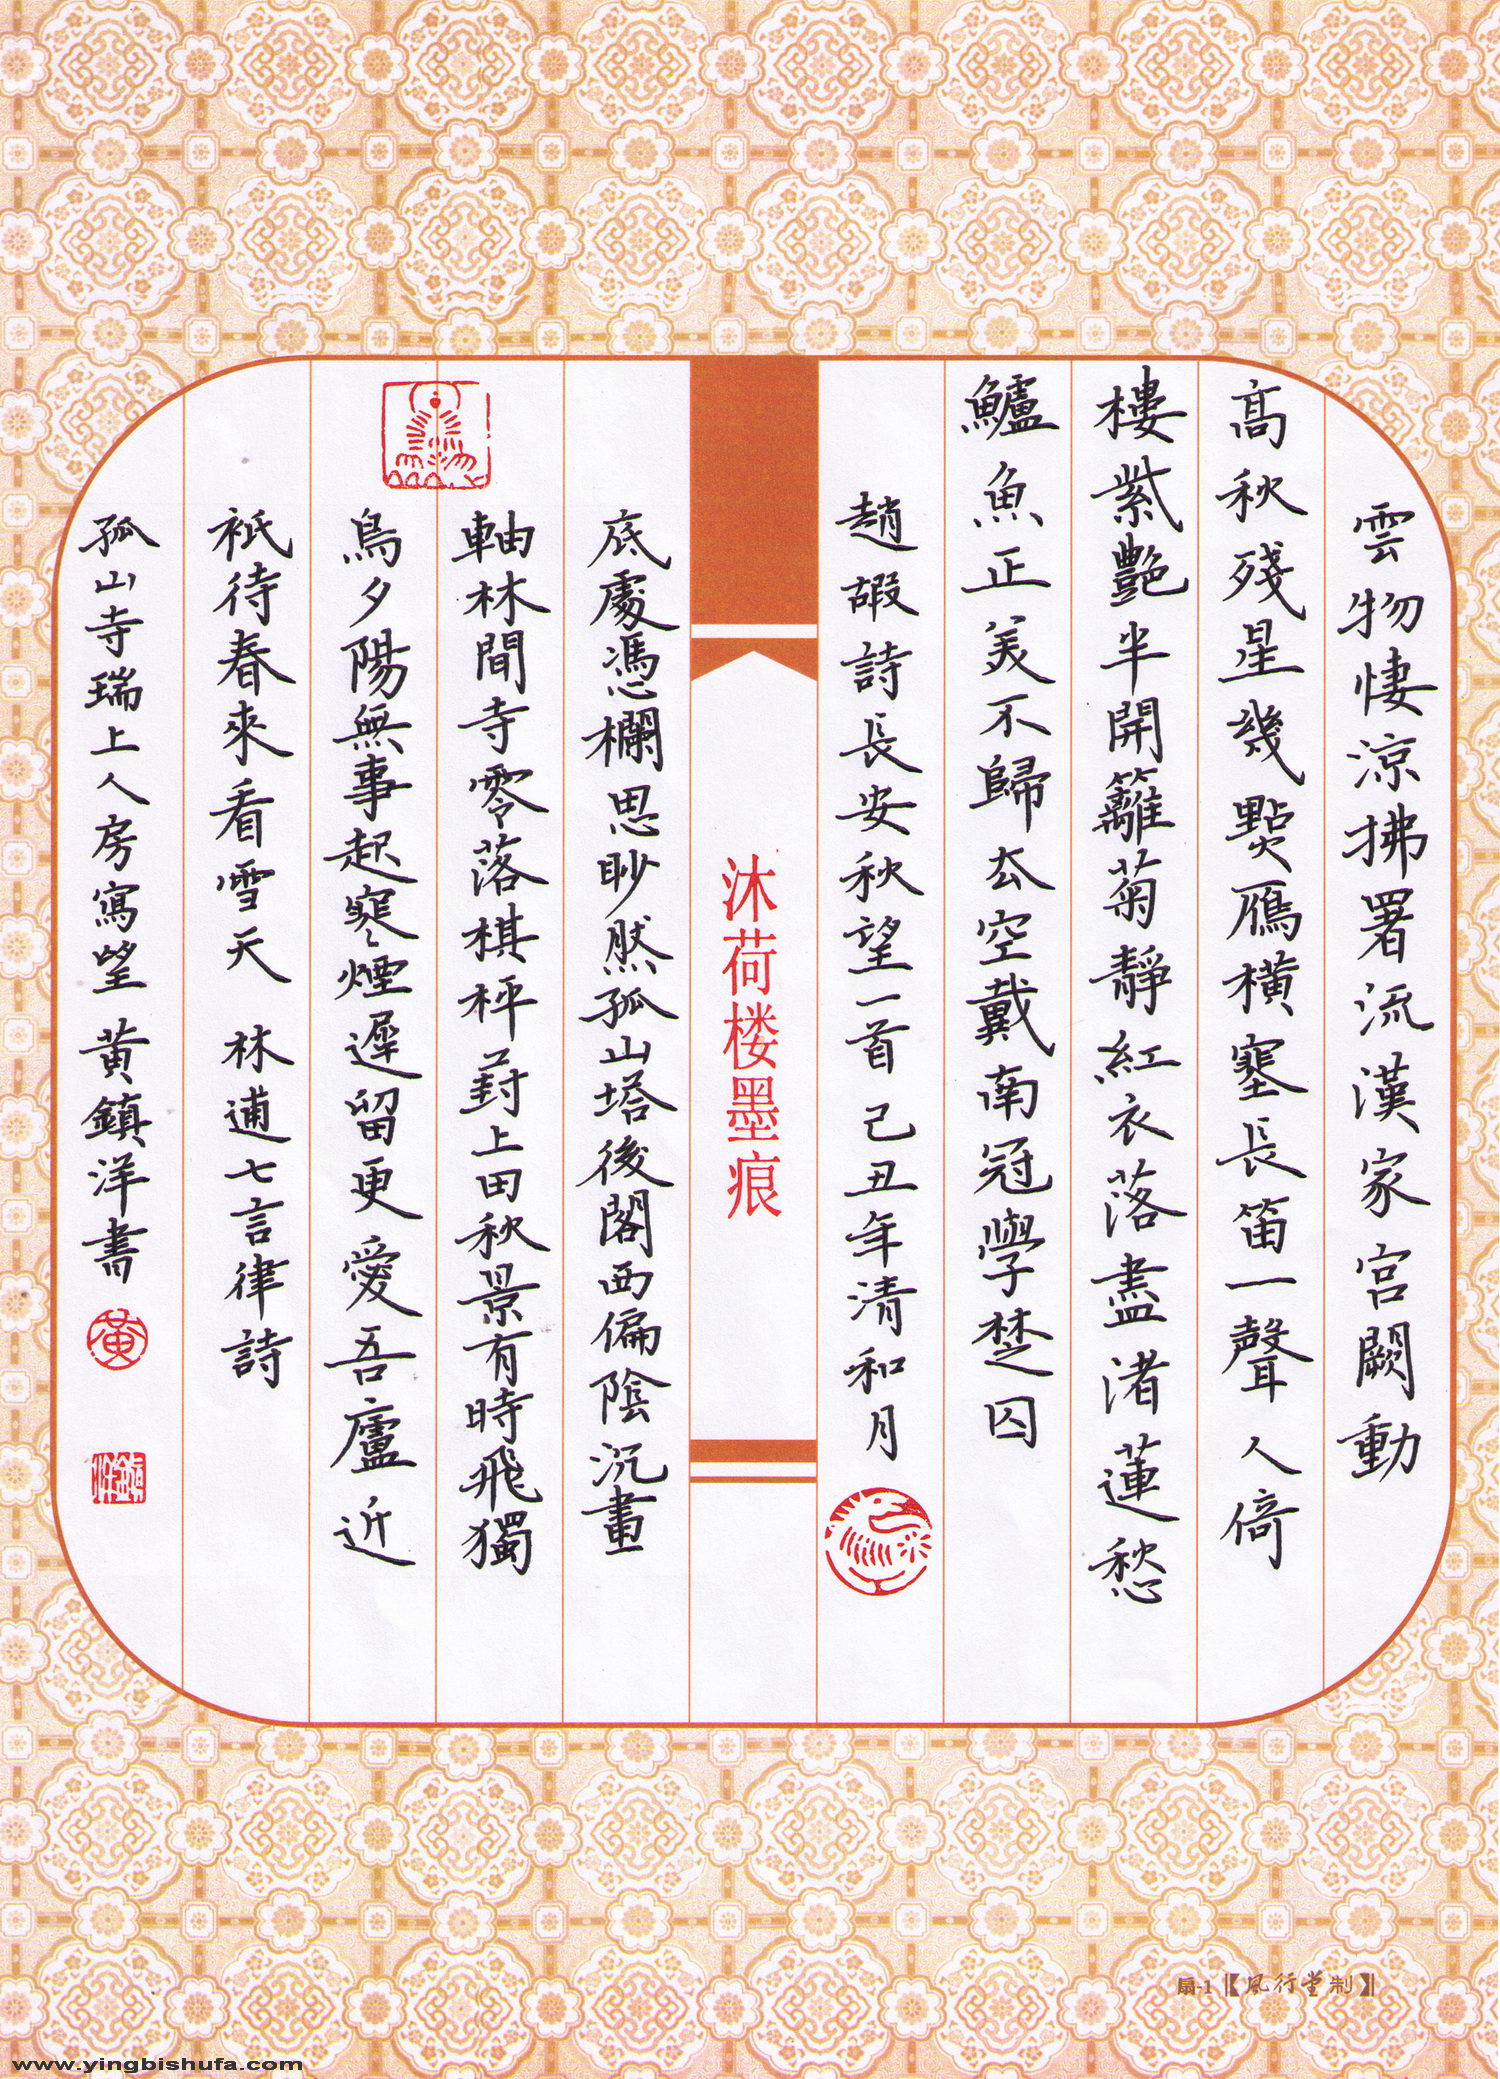 雲物悽涼拂署流漢家宮闕動
高秋殘星幾點鴈橫塞長笛一聲人倚
樓紫艷半開籬菊靜紅衣落盡渚蓮愁
鱸魚正美不歸去空戴南冠學楚囚
趙嘏詩長安秋望一首己丑年清和月
沐荷楼墨痕
底處憑欄思眇然孤山塔後閣西偏陰沉畫
軸林間寺零落棋枰葑上田秋景有時飛獨
鳥夕陽無事起寒煙遲留更愛吾廬近
祇待春來看雪天 林逋七言律詩
孤山寺瑞上人房寫望 黃鎮洋書
黃
鎮洋
扇-1【風行堂制】
www.yingbishufa.com